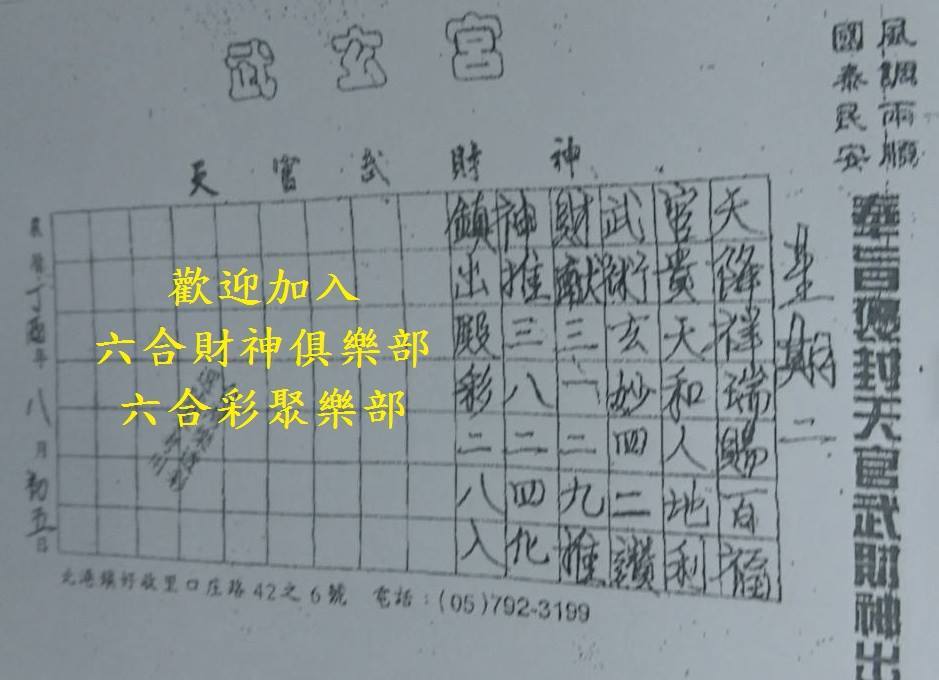 武玄宮
風調雨順
國泰民安
封天官武財神出
星期二
天官武財神
天降祥瑞賜百福
官貴天和人地利
武術玄妙四二讚
財獻三一二九推
神推三八二四化
鎮出殿彩二八入
歡迎加入
六合財神俱樂部
六合彩聚樂部
農曆丁酉年八月初五日
北港鎮好收里口庄路42之6號 電話：(05)792-3199